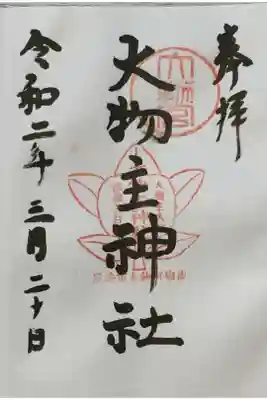 奉拝
大物主神社
令和二年三月二十日